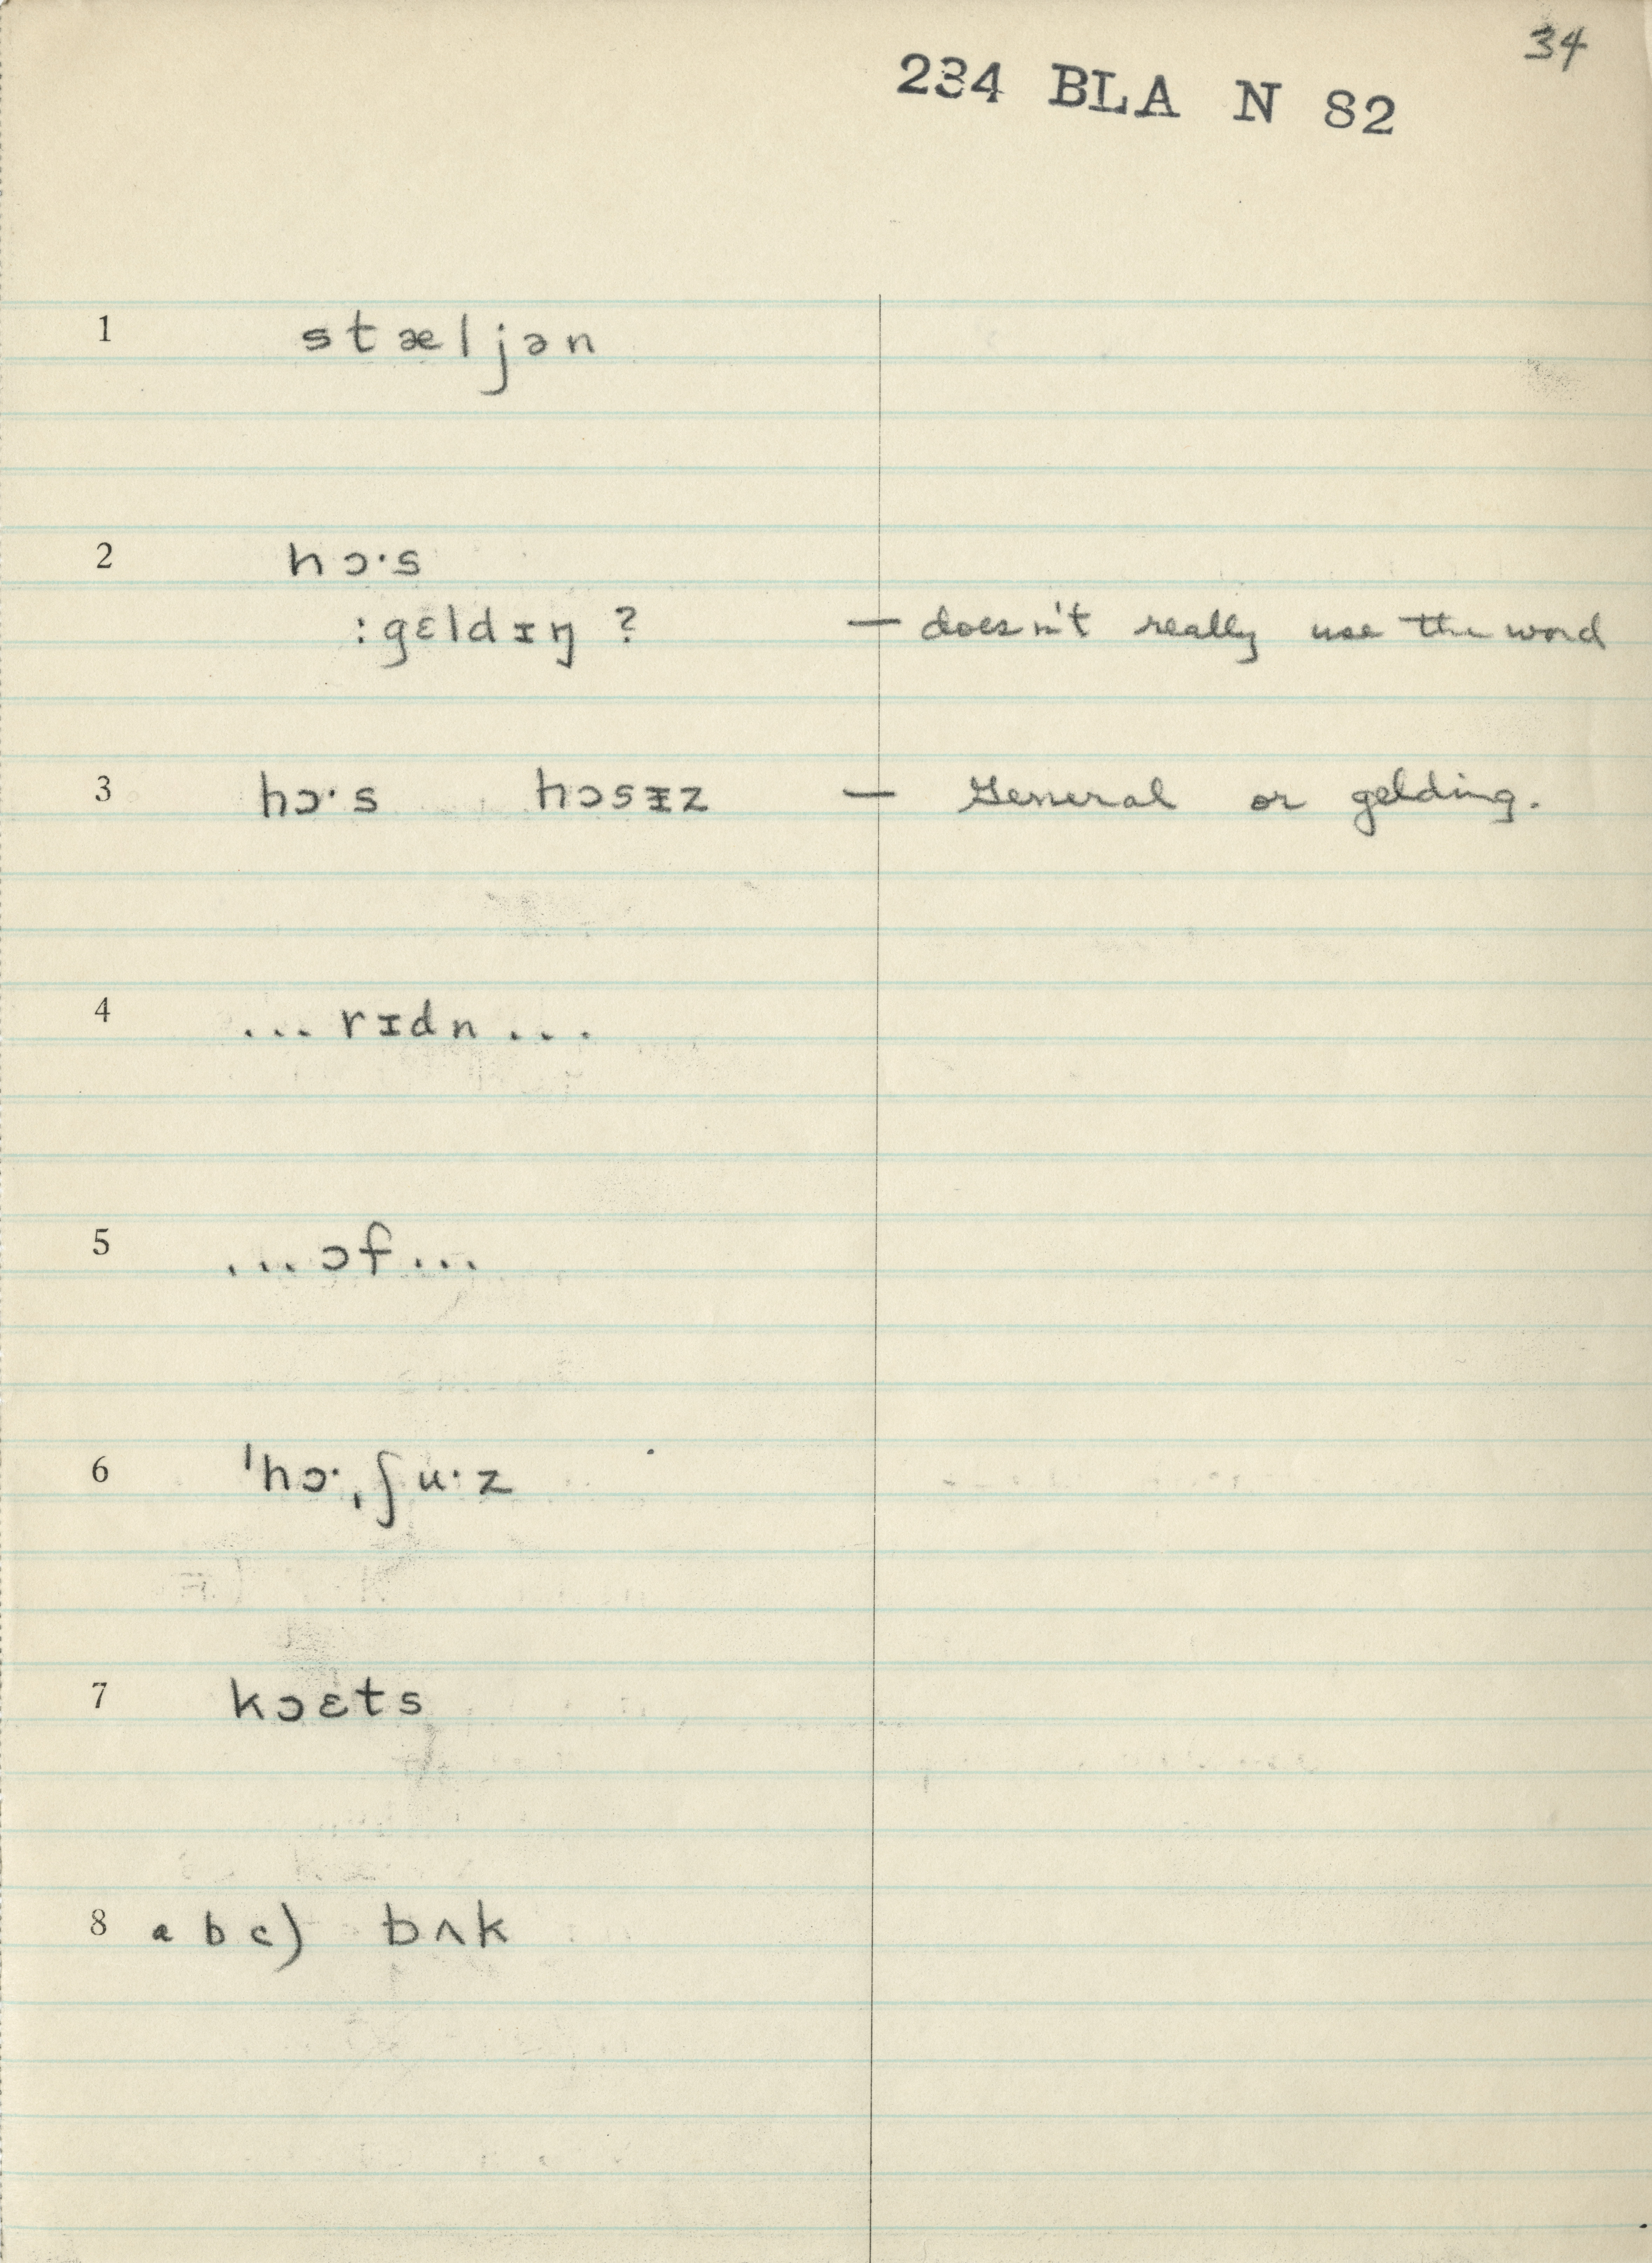 34
234 BLA N 82
1 stæljən
2 hɔ·s
:gɛldɪŋ ? — doesn't really use the word
3 hɔ·s hɔsɪ̵z — General or gelding.
4 ... rɪdn ...
5 ... ɔf ...
6 ˈhɔ·ˌʃu·z
7 kɔɛts
8 a b c) bʌk